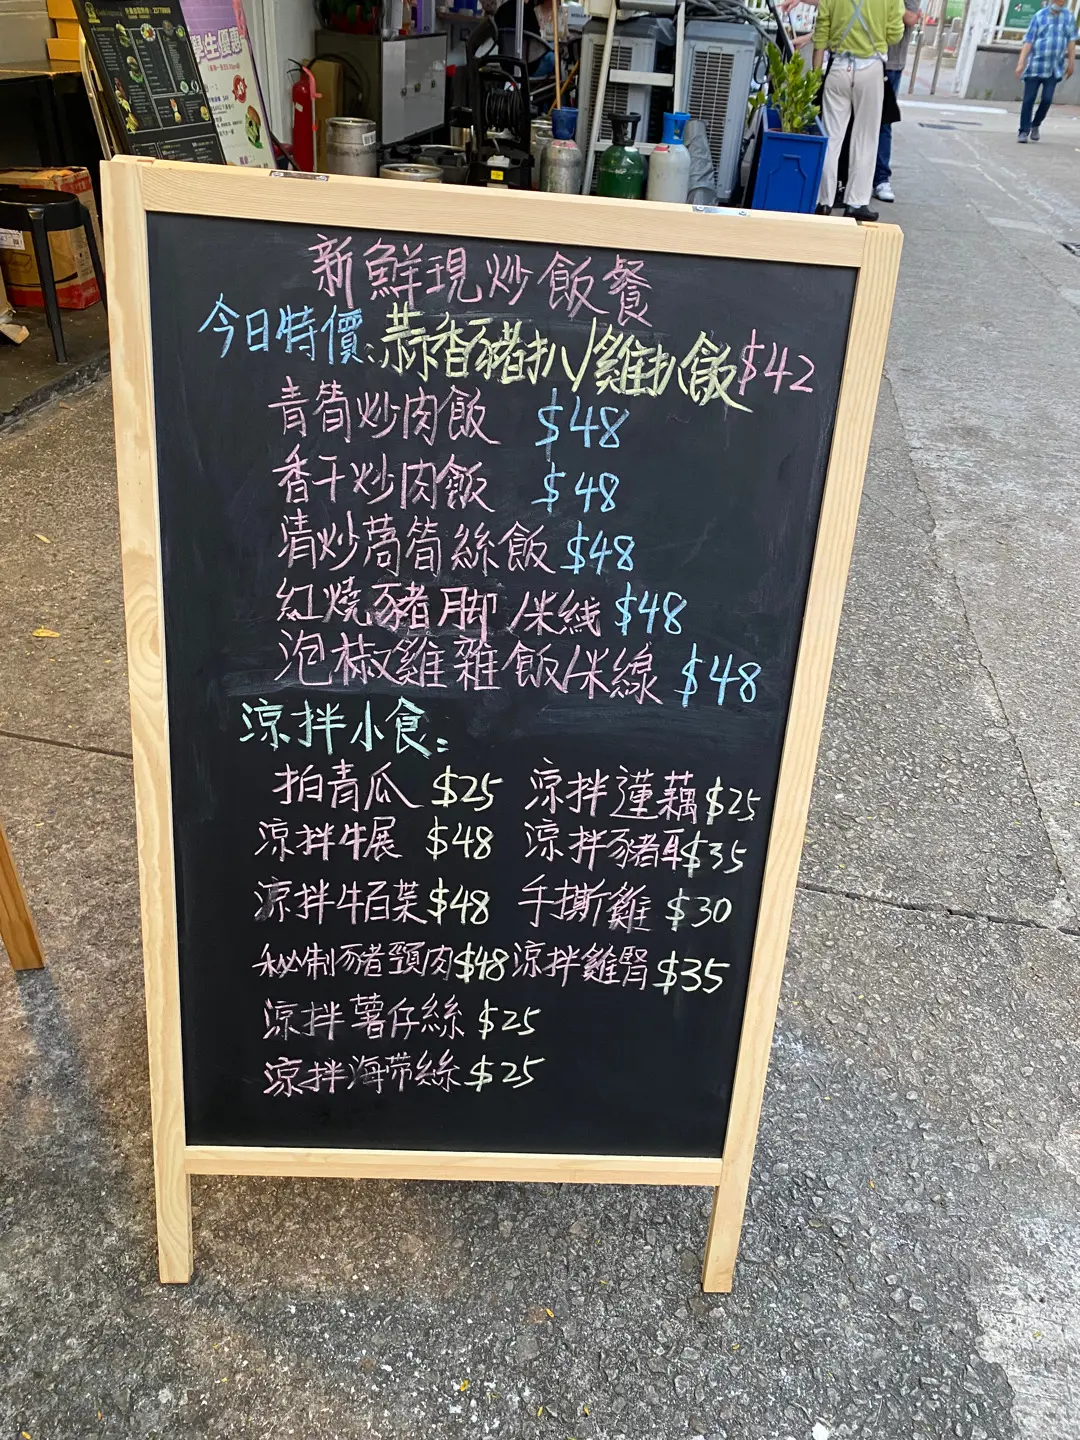 學生優惠
新鮮現炒飯餐
今日特價:蒜香豬扒/雞扒飯$42
青筍炒肉飯 $48
香干炒肉飯 $48
清炒萵筍絲飯 $48
紅燒豬脚/米线 $48
泡椒雞雜飯/米線 $48
涼拌小食:
拍青瓜 $25 涼拌蓮藕 $25
涼拌牛展 $48 涼拌豬耳 $35
涼拌牛百菜 $48 手撕雞 $30
秘制豬頸肉 $48 涼拌雞腎 $35
涼拌薯仔絲 $25
涼拌海带絲 $25